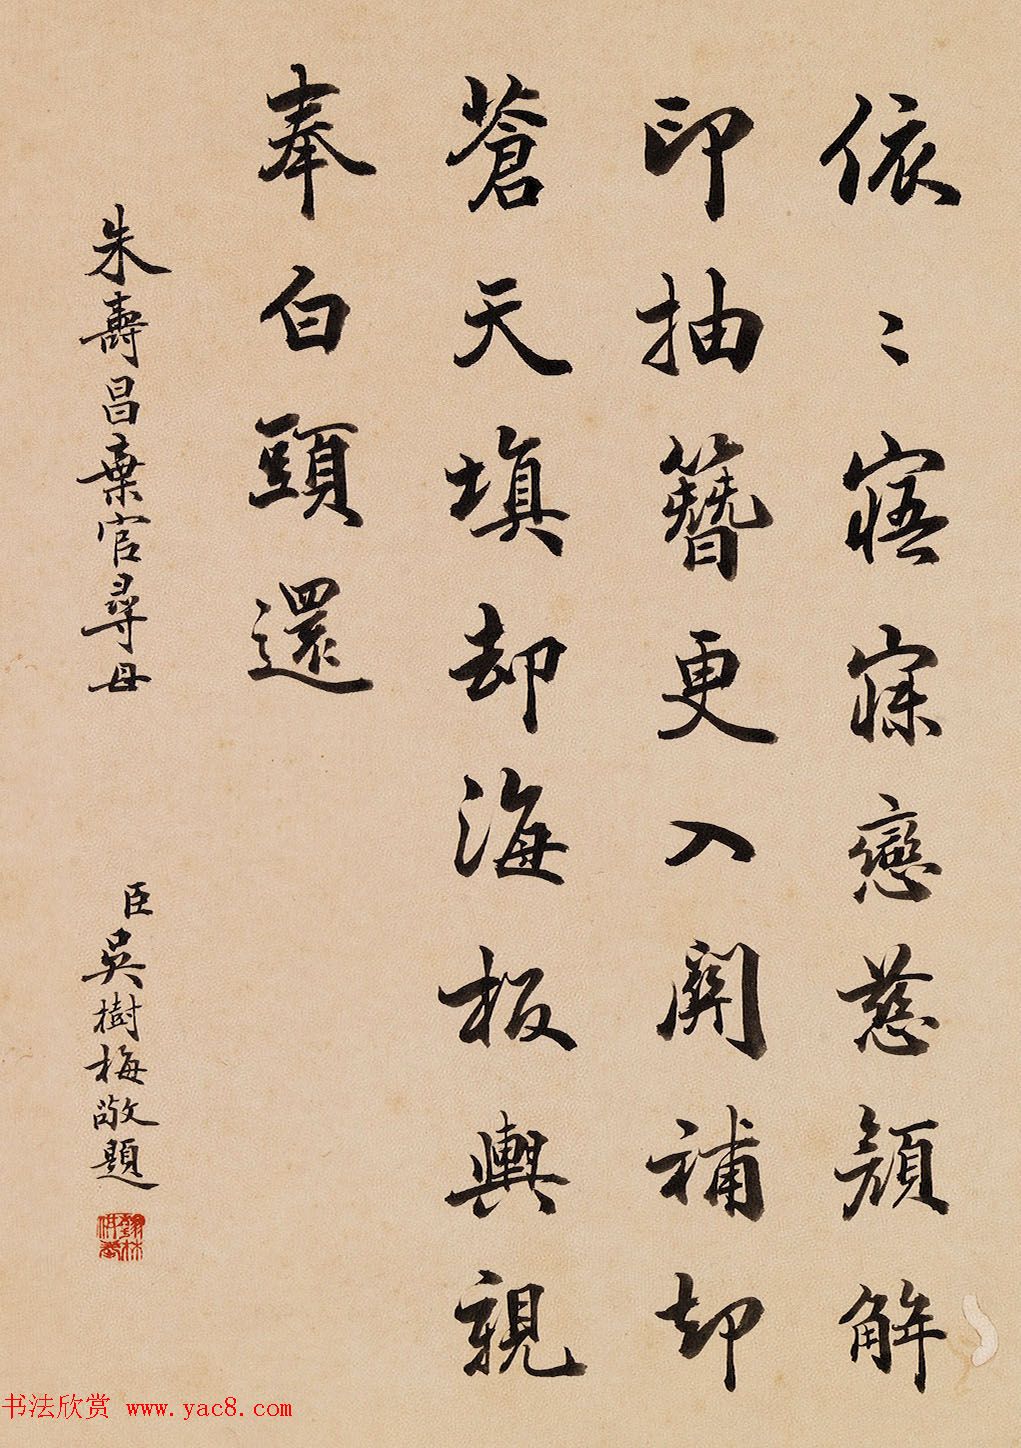 依〻寤寐戀慈顔解
印抽簪更入關補却
蒼天填却海板輿親
奉白頭還
朱壽昌棄官尋母
臣吳樹梅敬題
书法欣赏 www.yac8.com